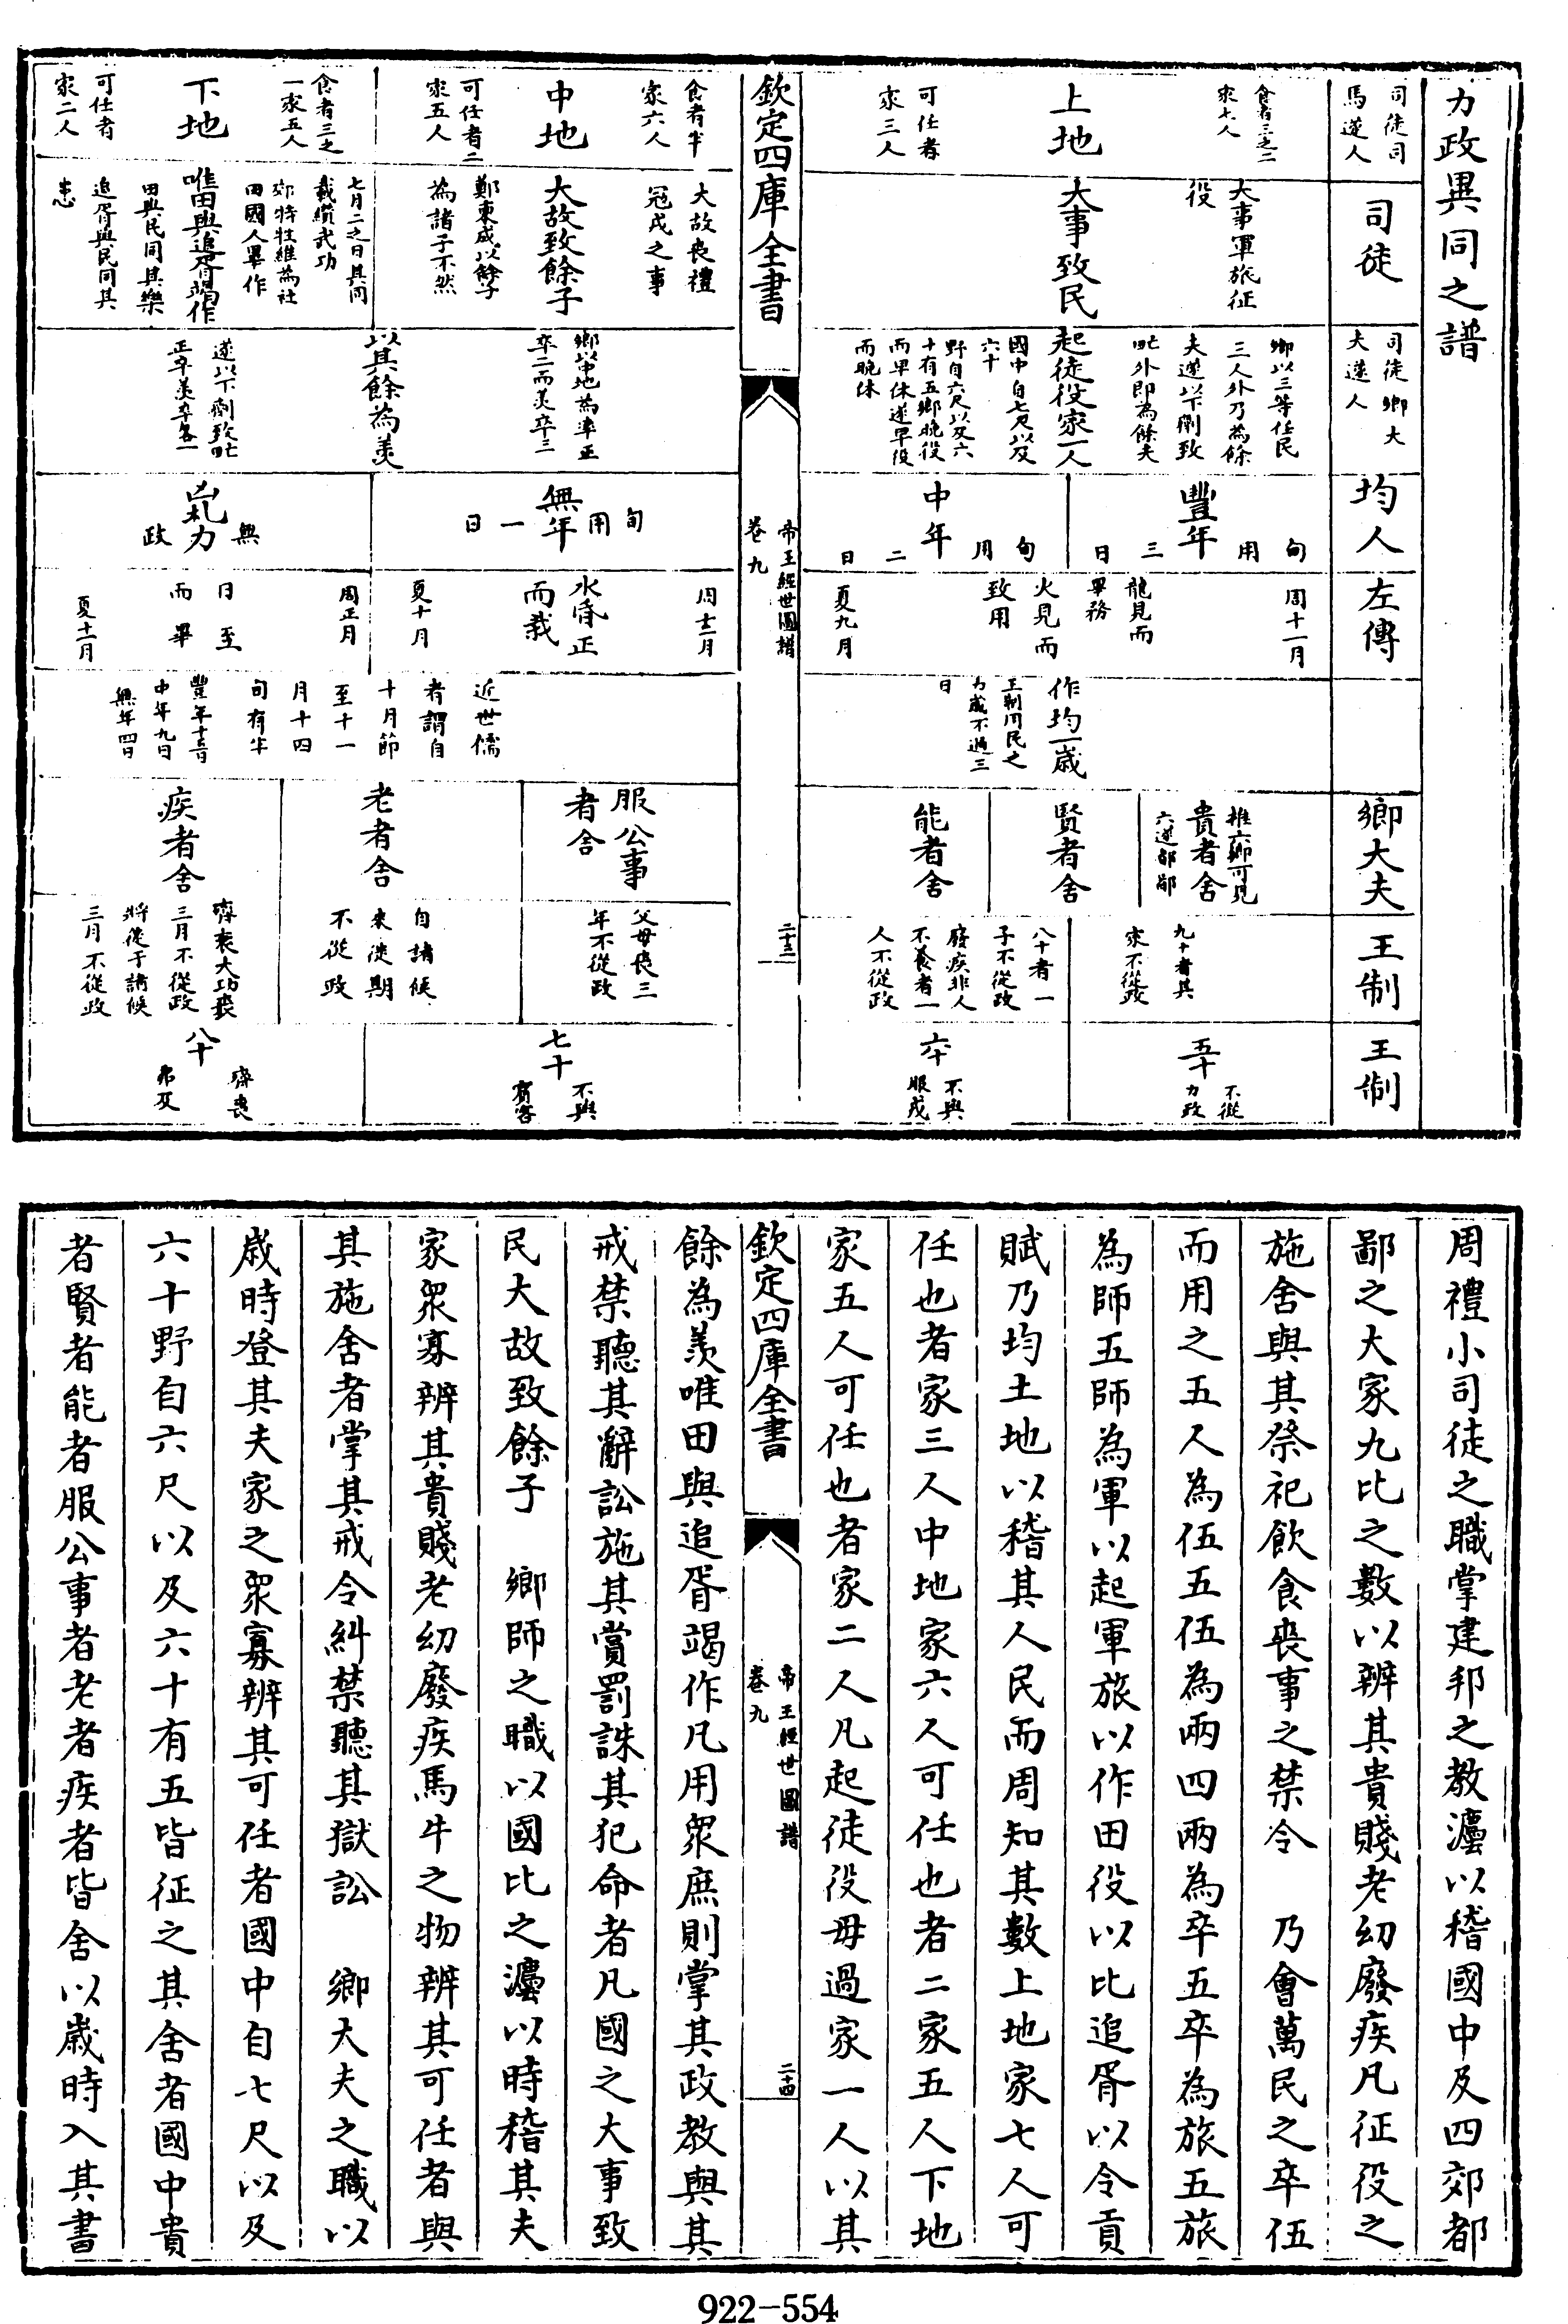 力政異同之譜
司徒司
馬遂人
食者三之二
家七人
上地
可任者
家三人
司徒
大事軍旅征
役
大事致民
司徒鄉大
夫遂人
鄉以三等任民
三人外乃為餘
夫遂以下劑致
甿外即為餘夫
起徒役家一人
國中自七尺以及
六十
野自六尺以及六
十有五鄉晚役
而早休遂早役
而晚休
均人
豐年
旬用三日
中年
旬用二日
左傳
周十一月
龍見而
畢務
火見而
致用
夏九月
作均一歲
王制用民之
力歲不過三
日
鄉大夫
推六鄉可見
貴者舍
六遂都鄙
賢者舍
能者舍
王制
九十者其
家不從政
八十者一
子不從政
廢疾非人
不養者一
人不從政
王制
五十
不從
力政
六十
不與
服戎
欽定四庫全書
帝王經世圖譜
卷九
二十三
食者半
家六人
中地
可任者二
家五人
食者三之
一家五人
下地
可任者
家二人
大故喪禮
冠戎之事
大故致餘子
鄭東咸以餘子
為諸子不然
七月二之日其同
載纘武功
郊特牲維為社
田國人畢作
唯田與追胥竭作
田與民同其樂
追胥與民同其
患
鄉以中地為率正
卒二而羨卒三
以其餘為羨
遂以下劑致甿
正卒羨卒各一
無年
旬用一日
凶札
無力政
周十二月
水昏正
而栽
夏十月
周正月
日至
而畢
夏十一月
近世儒
者謂自
十月節
至十一
月十四
旬有半
中年九日
無年四日
服公事
者舍
老者舍
疾者舍
父母喪三
年不從政
自諸侯
來徙期
不從政
齊衰大功喪
三月不從政
將徙于諸侯
三月不從政
七十
不與
賓客
八十
齊喪
弗及
周禮小司徒之職掌建邦之教灋以稽國中及四郊都
鄙之大家九比之數以辨其貴賤老幼廢疾凡征役之
施舍與其祭祀飲食喪事之禁令　乃會萬民之卒伍
而用之五人為伍五伍為兩四兩為卒五卒為旅五旅
為師五師為軍以起軍旅以作田役以比追胥以令貢
賦乃均土地以稽其人民而周知其數上地家七人可
任也者家三人中地家六人可任也者二家五人下地
家五人可任也者家二人凡起徒役毋過家一人以其
欽定四庫全書
帝王經世圖譜
卷九
二十四
餘為羨唯田與追胥竭作凡用眾庶則掌其政教與其
戒禁聽其辭訟施其賞罰誅其犯命者凡國之大事致
民大故致餘子　鄉師之職以國比之灋以時稽其夫
家眾寡辨其貴賤老幼廢疾馬牛之物辨其可任者與
其施舍者掌其戒令糾禁聽其獄訟　鄉大夫之職以
歲時登其夫家之眾寡辨其可任者國中自七尺以及
六十野自六尺以及六十有五皆征之其舍者國中貴
者賢者能者服公事者老者疾者皆舍以歲時入其書
922-554